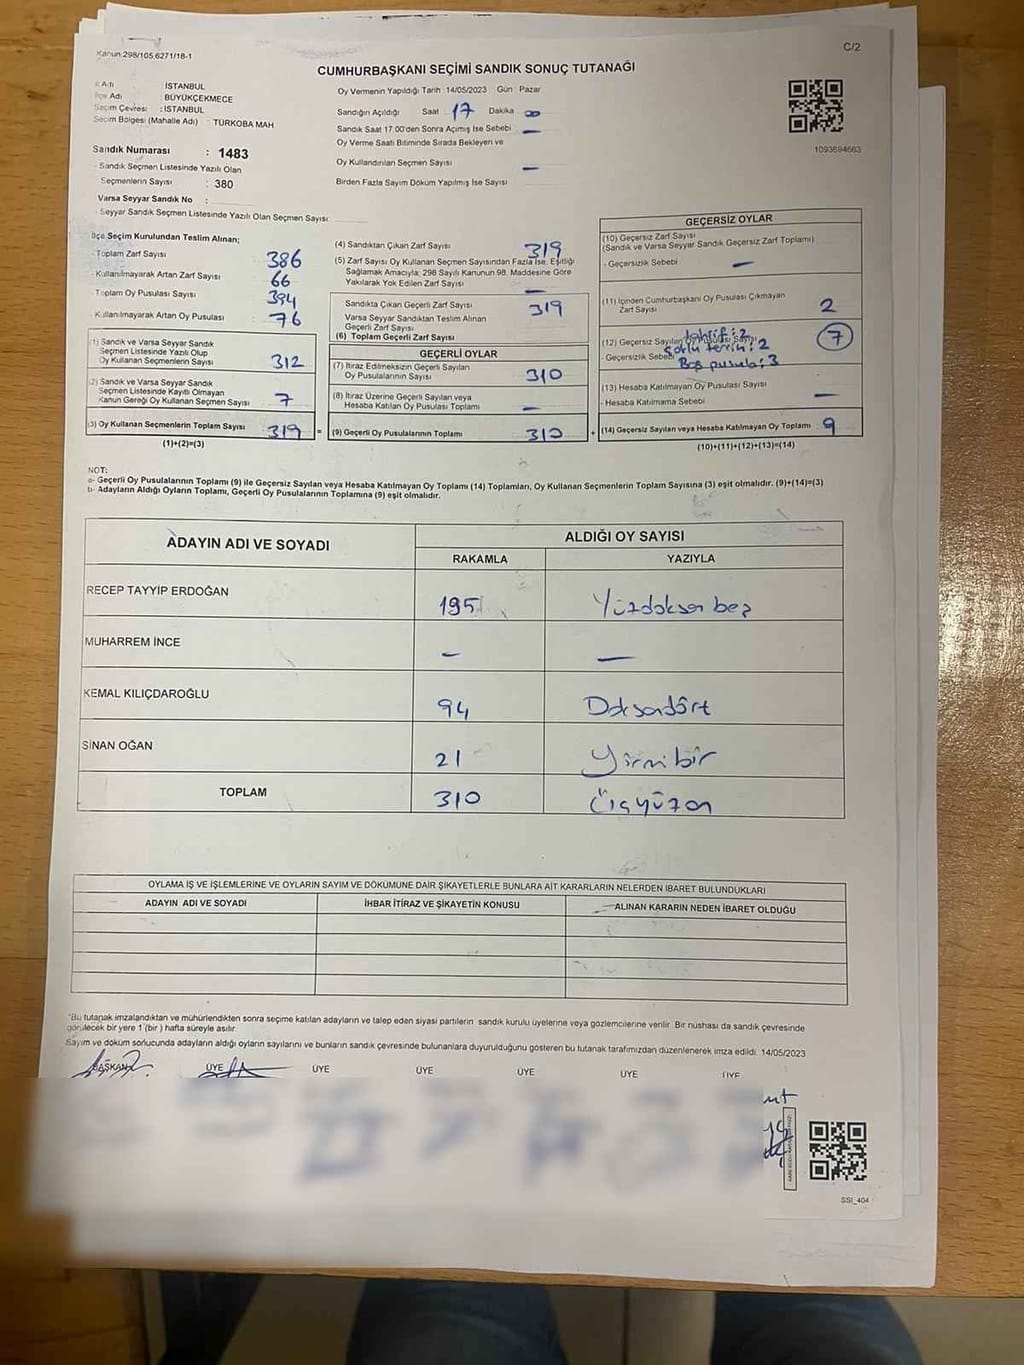 Kanun:298/105.6271/18-1
C/2
CUMHURBAŞKANI SEÇİMİ SANDIK SONUÇ TUTANAĞI
İl Adı : İSTANBUL
İlçe Adı BÜYÜKÇEKMECE
Seçim Çevresi : İSTANBUL
Seçim Bölgesi (Mahalle Adı) : TÜRKOBA MAH.
Sandık Numarası : 1483
Sandık Seçmen Listesinde Yazılı Olan
Seçmenlerin Sayısı : 380
Varsa Seyyar Sandık No :
Seyyar Sandık Seçmen Listesinde Yazılı Olan Seçmen Sayısı:
Oy Vermenin Yapıldığı Tarih :14/05/2023 Gün Pazar
Sandığın Açıldığı Saat 17 Dakika 00
Sandık Saat 17.00'den Sonra Açımış İse Sebebi —
Oy Verme Saati Bitiminde Sırada Bekleyen ve
Oy Kullandırılan Seçmen Sayısı —
Birden Fazla Sayım Döküm Yapılmış İse Sayısı
1093694663
İlçe Seçim Kurulundan Teslim Alınan;
Toplam Zarf Sayısı 386
Kullanılmayarak Artan Zarf Sayısı 66
Toplam Oy Pusulası Sayısı 394
Kullanılmayarak Artan Oy Pusulası 76
(1) Sandık ve Varsa Seyyar Sandık
Seçmen Listesinde Yazılı Olup
Oy Kullanan Seçmenlerin Sayısı 312
(2) Sandık ve Varsa Seyyar Sandık
Seçmen Listesinde Kayıtlı Olmayan
Kanun Gereği Oy Kullanan Seçmen Sayısı 7
(3) Oy Kullanan Seçmenlerin Toplam Sayısı 319 =
(1)+(2)=(3)
(4) Sandıktan Çıkan Zarf Sayısı 319
(5) Zarf Sayısı Oy Kullanan Seçmen Sayısından Fazla İse, Eşitliği
Sağlamak Amacıyla; 298 Sayılı Kanunun 98. Maddesine Göre
Yakılarak Yok Edilen Zarf Sayısı —
Sandıkta Çıkan Geçerli Zarf Sayısı 319
Varsa Seyyar Sandıktan Teslim Alınan
Geçerli Zarf Sayısı
(6) Toplam Geçerli Zarf Sayısı
GEÇERLİ OYLAR
(7) İtiraz Edilmeksizin Geçerli Sayılan
Oy Pusulalarının Sayısı 310
(8) İtiraz Üzerine Geçerli Sayılan veya
Hesaba Katılan Oy Pusulası Toplamı —
(9) Geçerli Oy Pusulalarının Toplamı 310 +
GEÇERSİZ OYLAR
(10) Geçersiz Zarf Sayısı
(Sandık ve Varsa Seyyar Sandık Geçersiz Zarf Toplamı)
- Geçersizlik Sebebi —
(11) İçinden Cumhurbaşkanı Oy Pusulası Çıkmayan
Zarf Sayısı 2
(12) Geçersiz Sayılan Oy Pusulası Sayısı 7
tahrif: 2
- Geçersizlik Sebebi : 2
Boş pusula: 3
(13) Hesaba Katılmayan Oy Pusulası Sayısı —
- Hesaba Katılmama Sebebi
(14) Geçersiz Sayılan veya Hesaba Katılmayan Oy Toplamı : 9
(10)+(11)+(12)+(13)=(14)
NOT:
a- Geçerli Oy Pusulalarının Toplamı (9) ile Geçersiz Sayılan veya Hesaba Katılmayan Oy Toplamı (14) Toplamları, Oy Kullanan Seçmenlerin Toplam Sayısına (3) eşit olmalıdır. (9)+(14)=(3)
b- Adayların Aldığı Oyların Toplamı, Geçerli Oy Pusulalarının Toplamına (9) eşit olmalıdır.
ADAYIN ADI VE SOYADI ALDIĞI OY SAYISI
RAKAMLA YAZIYLA
RECEP TAYYİP ERDOĞAN 195 Yüzdoksan beş
MUHARREM İNCE — —
KEMAL KILIÇDAROĞLU 94 Doksandört
SİNAN OĞAN 21 Yirmibir
TOPLAM 310 Üçyüzon
OYLAMA İŞ VE İŞLEMLERİNE VE OYLARIN SAYIM VE DÖKÜMÜNE DAİR ŞİKAYETLERLE BUNLARA AİT KARARLARIN NELERDEN İBARET BULUNDUKLARI
ADAYIN ADI VE SOYADI İHBAR İTİRAZ VE ŞİKAYETİN KONUSU ALINAN KARARIN NEDEN İBARET OLDUĞU
*Bu tutanak imzalandıktan ve mühürlendikten sonra seçime katılan adayların ve talep eden siyasi partilerin sandık kurulu üyelerine veya gözlemcilerine verilir. Bir nüshası da sandık çevresinde
görülecek bir yere 1 (bir ) hafta süreyle asılır.
Sayım ve döküm sonucunda adayların aldığı oyların sayılarını ve bunların sandık çevresinde bulunanlara duyurulduğunu gösteren bu tutanak tarafımızdan düzenlenerek imza edildi. 14/05/2023
BAŞKAN ÜYE ÜYE ÜYE ÜYE ÜYE ÜYE
SSI_404